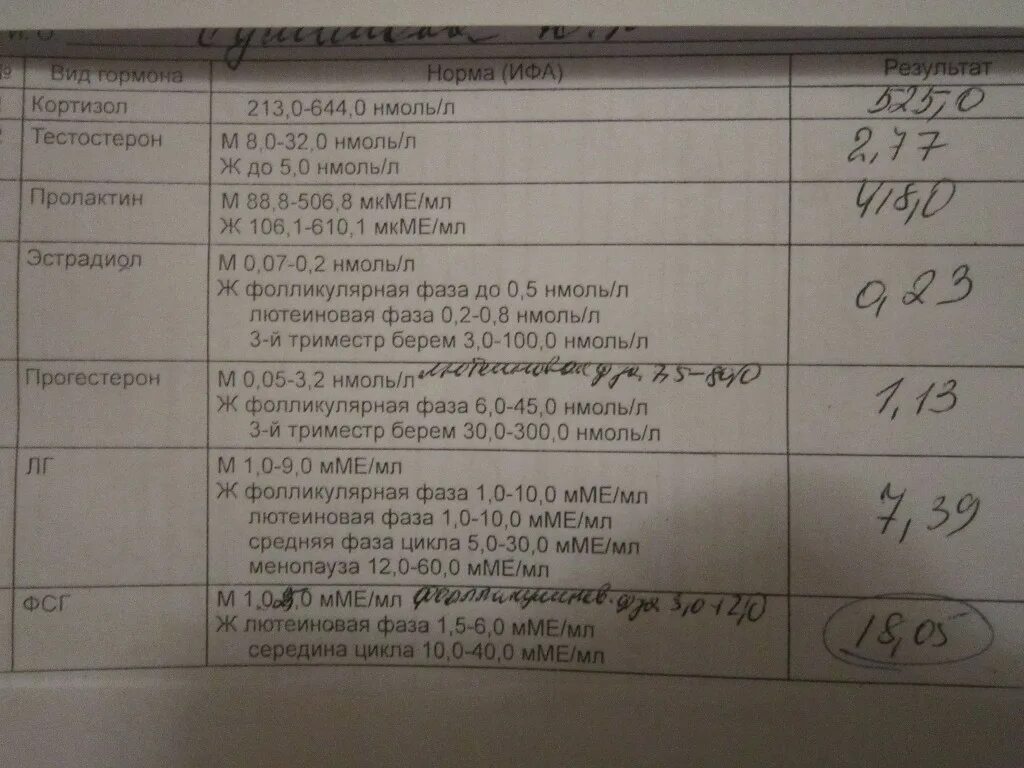 Вид гормона Норма (ИФА) Результат
Кортизол 213,0-644,0 нмоль/л 525,0
Тестостерон М 8,0-32,0 нмоль/л 2,77
Ж до 5,0 нмоль/л
Пролактин М 88,8-506,8 мкМЕ/мл 418,0
Ж 106,1-610,1 мкМЕ/мл
Эстрадиол М 0,07-0,2 нмоль/л
Ж фолликулярная фаза до 0,5 нмоль/л 0,23
лютеиновая фаза 0,2-0,8 нмоль/л
3-й триместр берем 3,0-100,0 нмоль/л
Прогестерон М 0,05-3,2 нмоль/л лютеиновая фаза 7,5-80,0
Ж фолликулярная фаза 6,0-45,0 нмоль/л 1,13
3-й триместр берем 30,0-300,0 нмоль/л
ЛГ М 1,0-9,0 мМЕ/мл
Ж фолликулярная фаза 1,0-10,0 мМЕ/мл 7,39
лютеиновая фаза 1,0-10,0 мМЕ/мл
средняя фаза цикла 5,0-30,0 мМЕ/мл
менопауза 12,0-60,0 мМЕ/мл
ФСГ М мМЕ/мл фолликулинов. фза 3,0-12,0
Ж лютеиновая фаза 1,5-6,0 мМЕ/мл 18,05
середина цикла 10,0-40,0 мМЕ/мл